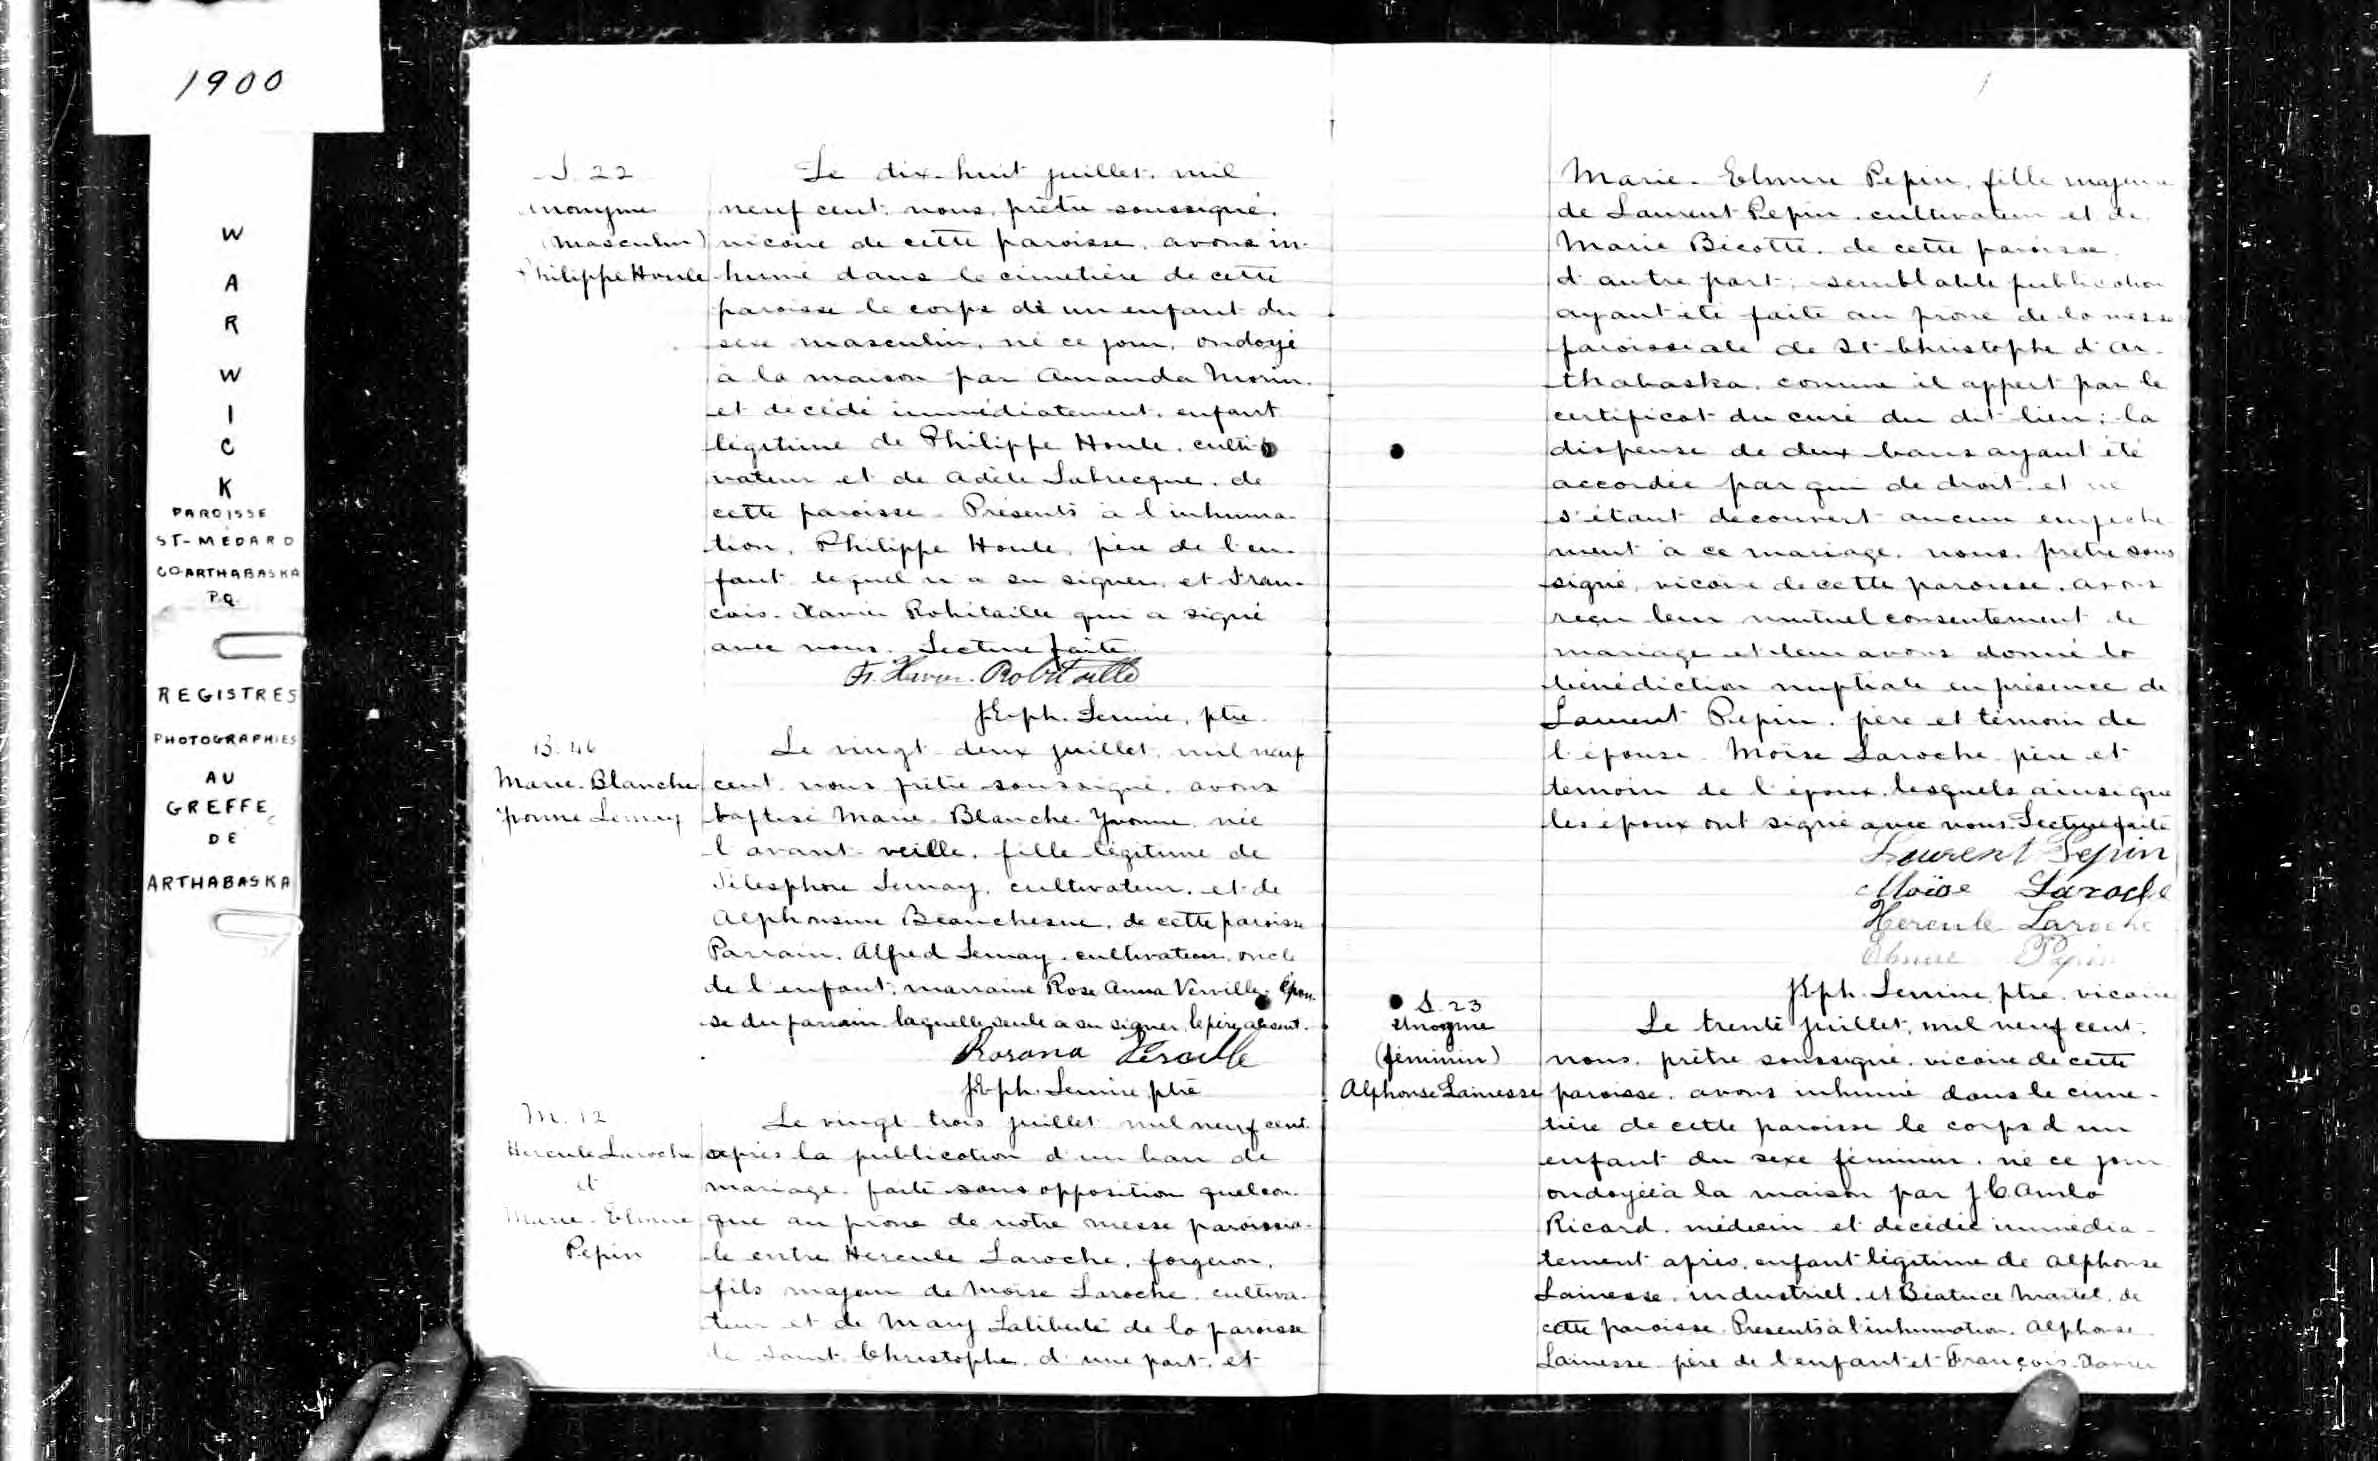 1900
W
A
R
W
I
C
K
PAROISSE
ST-MÉDARD
CO ARTHABASKA
P.Q.
REGISTRES
PHOTOGRAPHIES
AU
GREFFE
DE
ARTHABASKA
S. 22
Anonyme
(Masculin)
Philippe Houle
Le dix-huit juillet, mil
neuf cent, nous, prêtre soussigné,
vicaire de cette paroisse, avons in-
humé dans le cimetière de cette
paroisse le corps de un enfant du
sexe masculin, né ce jour, ondoyé
à la maison par Amanda Morin,
et décédé immédiatement, enfant
légitime de Philippe Houle, culti-
vateur et de Adèle Labrecque, de
cette paroisse. Présents à l'inhuma-
tion, Philippe Houle, père de l'en-
fant lequel n'a su signer, et Fran-
çois-Xavier Robitaille qui a signé
avec nous. Lecture faite.
Fr. Xavier Robitaille
J.E.ph. Lemire, ptre.
B. 46
Marie-Blanche
Yvonne Lemay
Le vingt-deux juillet, mil neuf
cent, nous prêtre soussigné, avons
baptisé Marie-Blanche-Yvonne, née
l'avant-veille, fille légitime de
Télesphore Lemay, cultivateur, et de
Alphonsine Beauchesne, de cette paroisse
Parrain, Alfred Lemay, cultivateur, oncle
de l'enfant; marraine Rose Anna Verville, épou-
se du parrain laquelle seule a su signer, le père absent.
Rosana Verville
J.E.ph. Lemire ptre
M. 12
Hercule Laroche
et
Marie-Elmire
Pepin
Le vingt-trois juillet mil neuf cent
après la publication d'un ban de
mariage faite sans opposition quelcon-
que au prône de notre messe paroissia-
le entre Hercule Laroche, forgeron,
fils majeur de Moïse Laroche, cultiva-
teur et de Mary Laliberté de la paroisse
de Saint Christophe, d'une part, et
Marie-Elmire Pepin, fille majeure
de Laurent Pepin, cultivateur et de
Marie Bécotte, de cette paroisse
d'autre part; semblable publication
ayant été faite au prône de la messe
paroissiale de St-Christophe d'Ar-
thabaska, comme il appert par le
certificat du curé du dit lieu; la
dispense de deux bans ayant été
accordée par qui de droit et ne
s'étant découvert aucun empêche
ment à ce mariage, nous, prêtre sous
signé, vicaire de cette paroisse, avons
reçu leur mutuel consentement de
mariage et leur avons donné la
bénédiction nuptiale en présence de
Laurent Pepin, père et témoin de
l'épouse Moïse Laroche père et
témoin de l'époux, lesquels ainsi que
les époux ont signé avec nous. Lecture faite
Laurent Pepin
Moïse Laroche
Hercule Laroche
Elmire Pepin
J.E.ph. Lemire, ptre. vicaire
S. 23
Anonyme
(féminin)
Alphonse Lainesse
Le trente juillet, mil neuf cent,
nous, prêtre soussigné, vicaire de cette
paroisse, avons inhumé dans le cime-
tière de cette paroisse le corps d'un
enfant du sexe féminin, né ce jour
ondoyée à la maison par J.C.
Ricard, médecin et décédée immédia-
tement après, enfant légitime de Alphonse
Lainesse, industriel, et Béatrice Martel, de
cette paroisse. Présents à l'inhumation, Alphonse
Lainesse père de l'enfant et François-Xavier